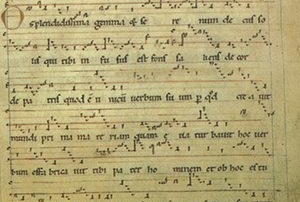 O splendidissima gemma & se re num de cus so
lis qui tibi in fu sus est fons sa liens de cor
de pa tris quod e u nicu verbum su um p qd cre a uit
mundi pri ma ma te riam quam e ua tur bauit hoc ver
bum effa brica uit tibi pa ter ho minem et ob hoc es tu